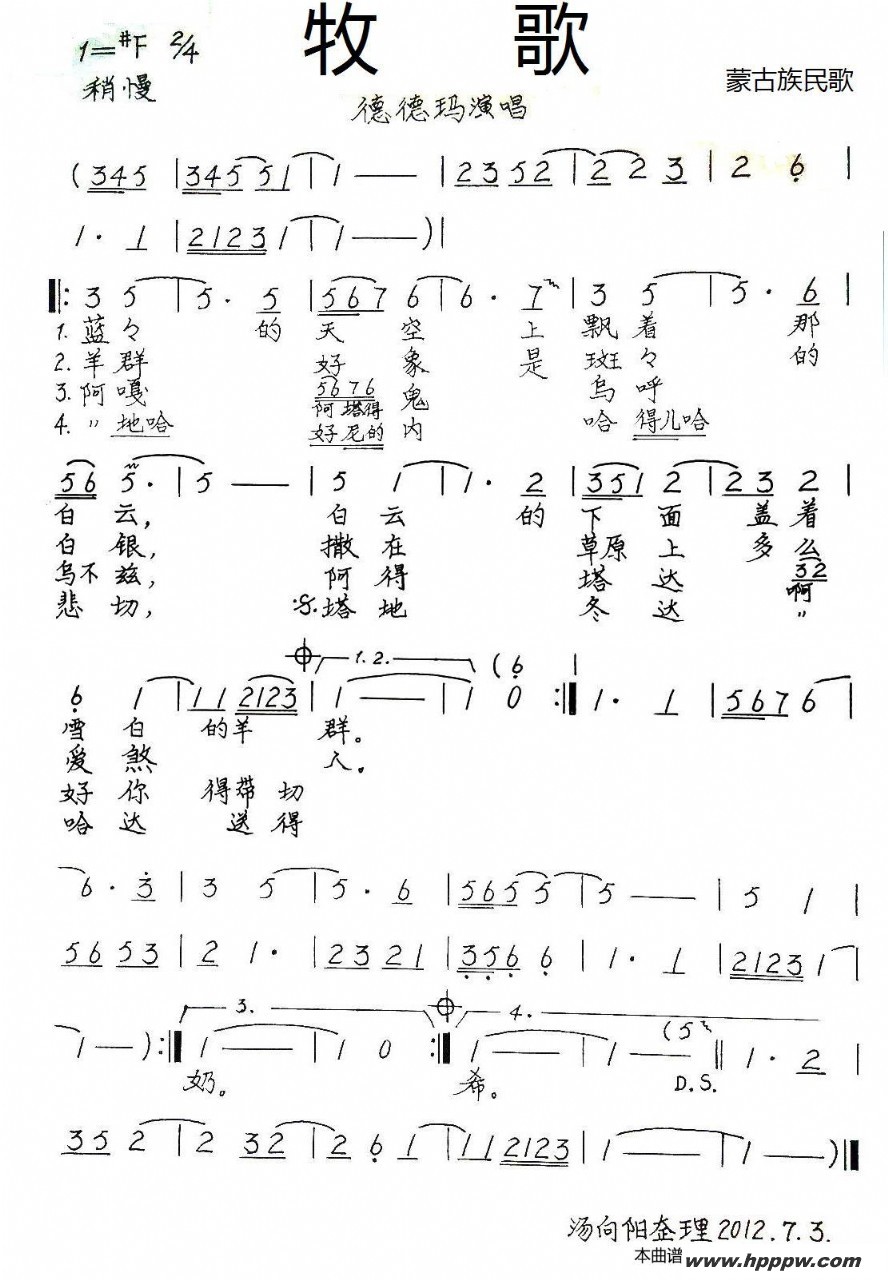 牧 歌
1=#F 2/4
稍慢
蒙古族民歌
德德玛演唱
(345 | 3455 51 | 1 — | 2352 | 2 2 3 | 2 6 |
1· 1 | 2123 1 | 1 — )|
‖: 3 5 | 5· 5 | 567 6 | 6· 7 | 3 5 | 5· 6 |
1. 蓝々 的 天 空 上 飘 着 那
2. 羊群 好 象 是 斑々 的
5676
3. 阿嘎 阿塔得 鬼 乌 呼
4. 〃地哈 好尼的 内 哈 得儿哈
56 5· | 5 — | 5 1 | 1· 2 | 351 2 | 23 2 |
白 云, 白 云 的 下 面 盖 着
白 银, 撒 在 草原 上 多 么
32
乌不 兹, 阿 得 塔 达 啊
悲 切, 塔 地 冬 达 〃
1.2. (6 |
6 1 | 11 2123 | 1 — | 1 0 :‖ 1· 1 | 567 6 |
雪 白 的羊 群。
爱 煞 人。
好 你 得带 切
哈 达 送 得
6· 3 | 3 5 | 5· 6 | 5655 5 | 5 — | 5 1 |
56 53 | 2 1· | 23 21 | 356 6 | 1· 1 | 2123 1 |
3. 4.
1 — ) :‖ 1 — | 1 0 :‖ 1 — | 1 (5 ‖ 1· 2 |
奶。 希。 D.S.
35 2 | 2 32 | 2 6 1 | 11 2123 | 1 — | 1 — )‖
汤向阳整理2012.7.3.
本曲谱 www.hpppw.com